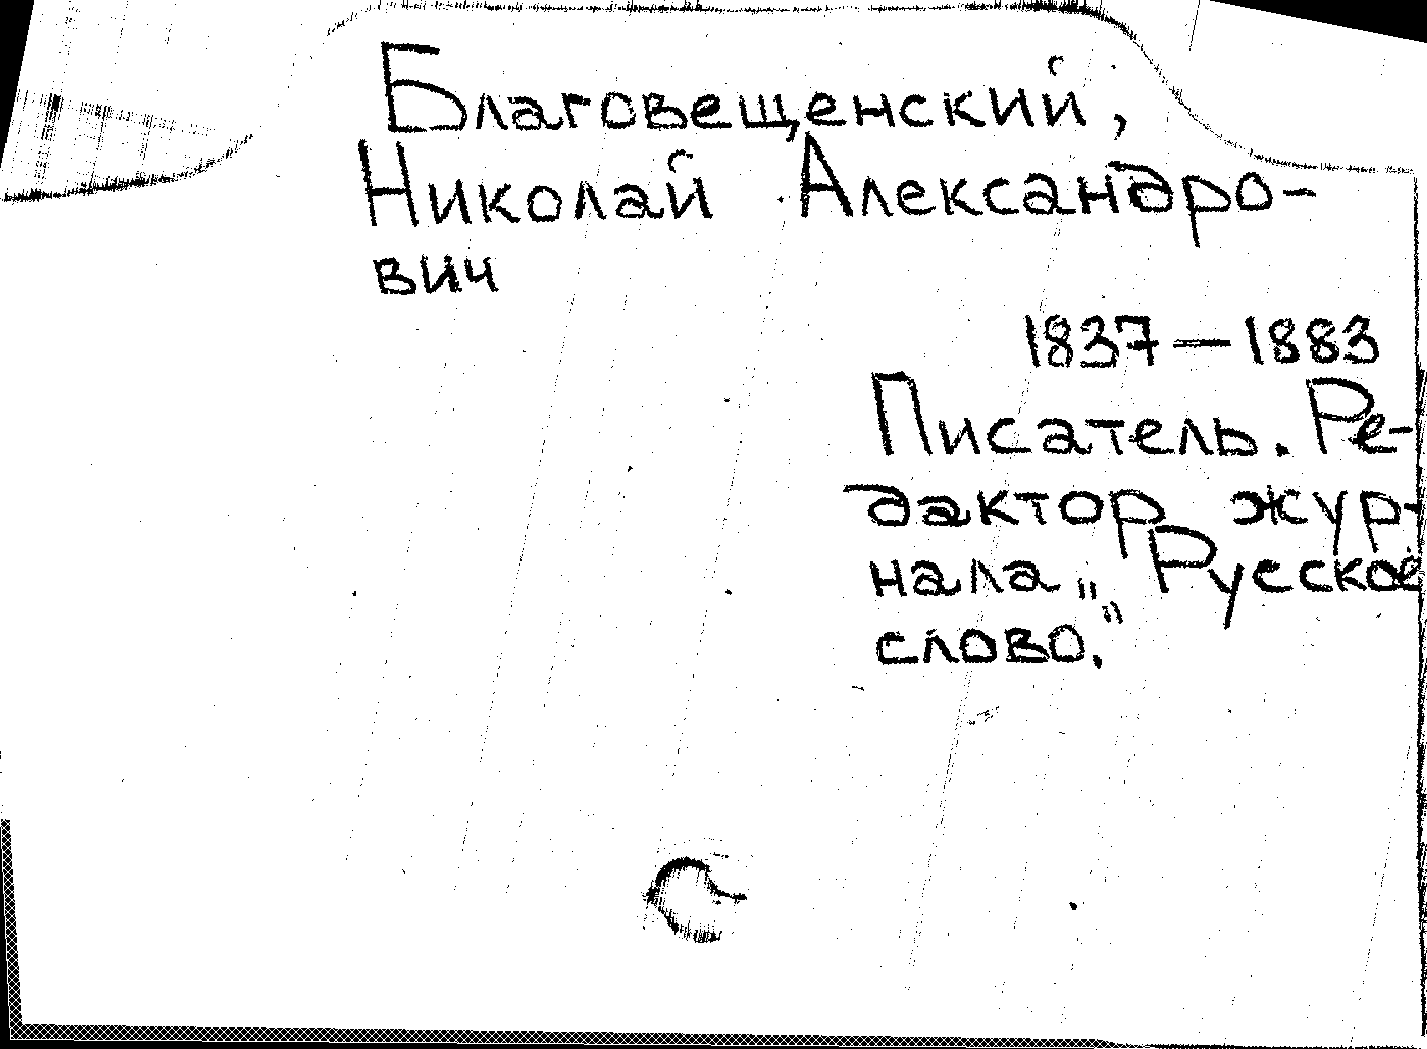 Благовещенский,
Николай Александро-
вич
1837 — 1883
Писатель. Ре-
дактор жур-
нала „Русское
слово."